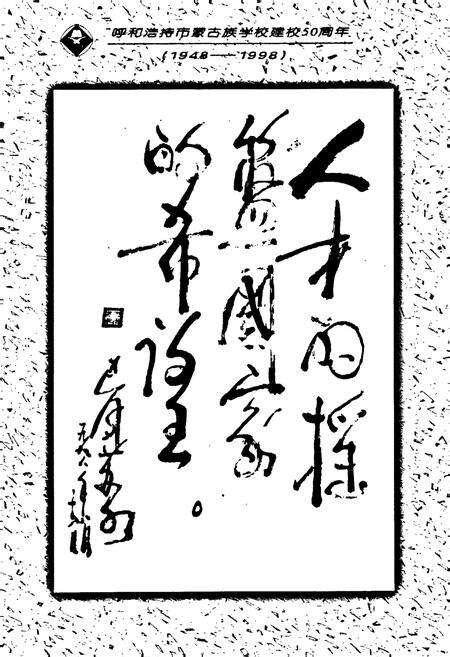 呼和浩特市蒙古族学校建校50周年
(1948——1998)
人才的摇
篮国家
的希望。